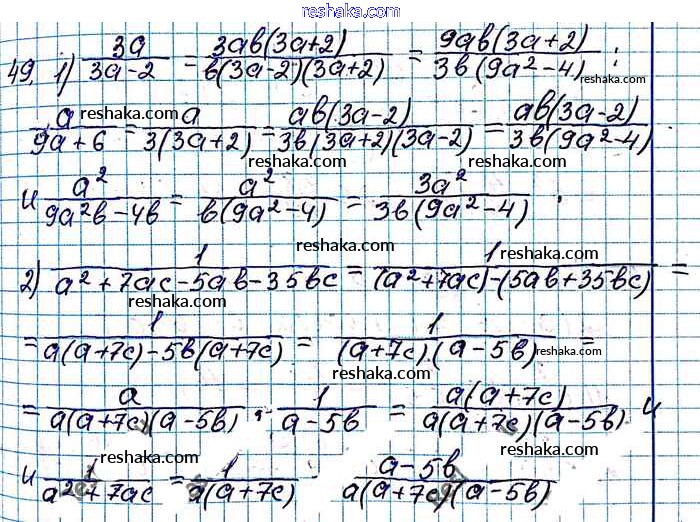 reshaka.com
49. 1) 3a/(3a-2) = 3ab(3a+2)/(b(3a-2)(3a+2)) = 9ab(3a+2)/(3b(9a²-4)) ;
reshaka.com
reshaka.com reshaka.com
a/(9a+6) = a/(3(3a+2)) = ab(3a-2)/(3b(3a+2)(3a-2)) = ab(3a-2)/(3b(9a²-4))
reshaka.com
и a²/(9a²b-4b) = a²/(b(9a²-4)) = 3a²/(3b(9a²-4)) .
reshaka.com
reshaka.com reshaka.com
2) 1/(a²+7ac-5ab-35bc) = 1/((a²+7ac)-(5ab+35bc)) =
reshaka.com
= 1/(a(a+7c)-5b(a+7c)) = 1/((a+7c)·(a-5b)) =
reshaka.com
reshaka.com
= a/(a(a+7c)(a-5b)) ; 1/(a-5b) = a(a+7c)/(a(a+7c)(a-5b)) и
reshaka.com
reshaka.com
и 1/(a²+7ac) = 1/(a(a+7c)) (a-5b)/(a(a+7c)(a-5b))
reshaka.com